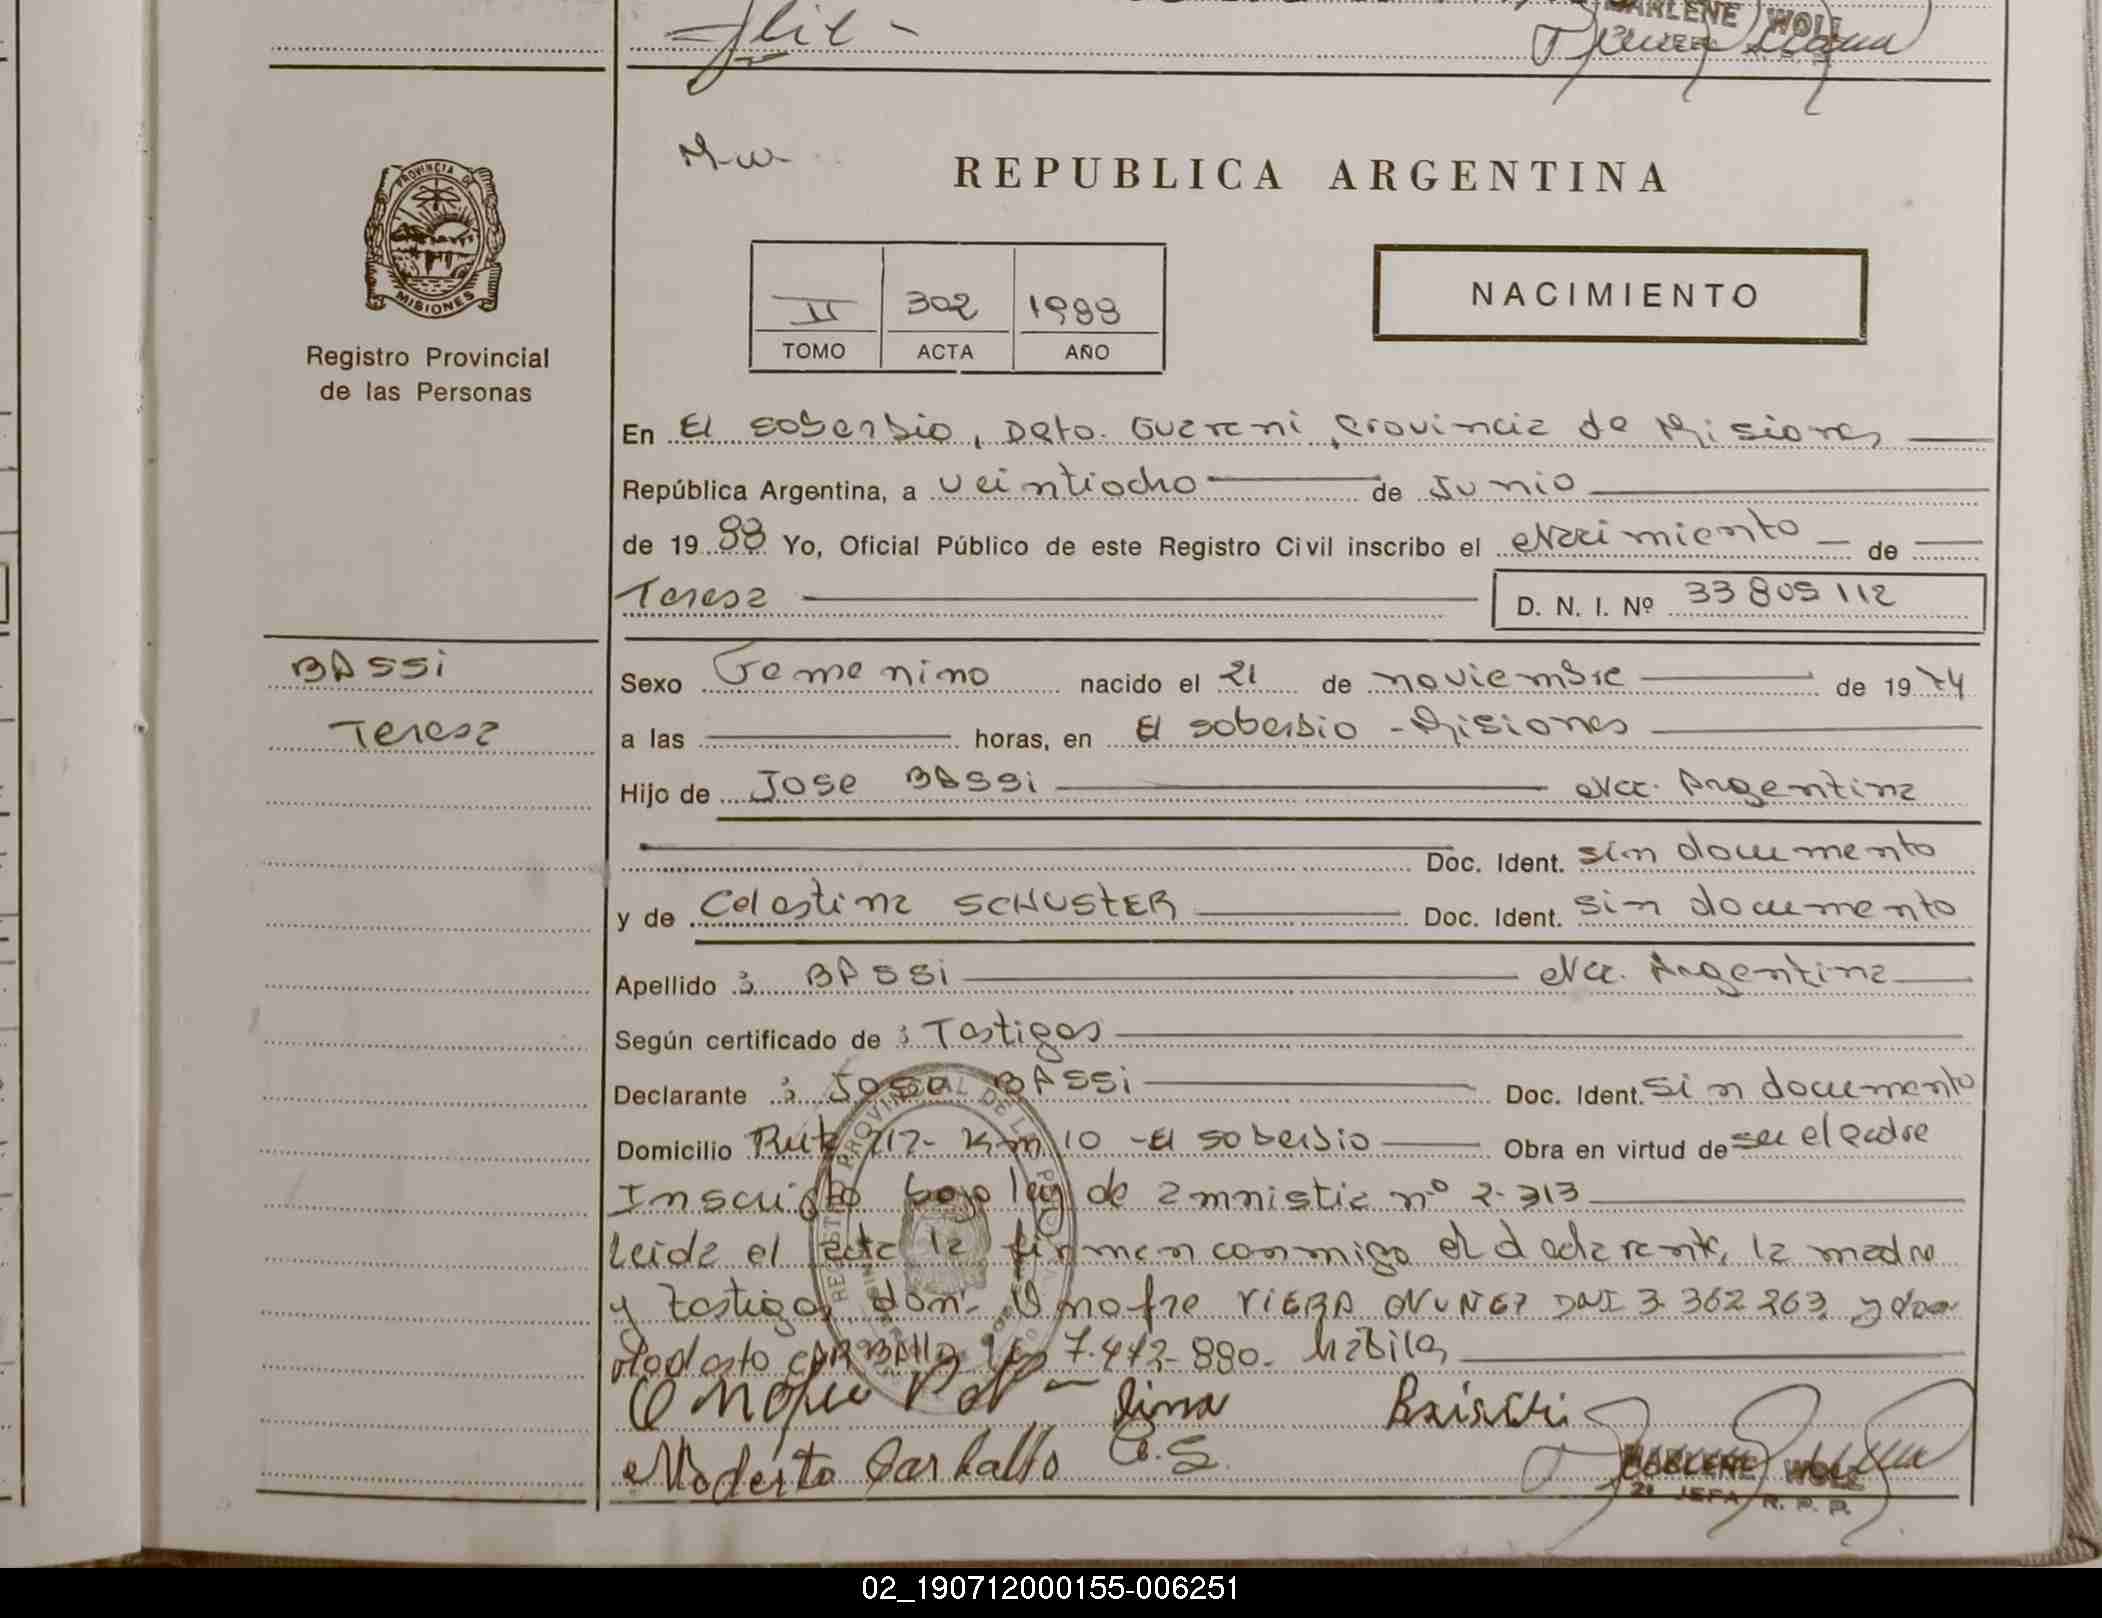 MARLENE WOLL
M-w-
PROVINCIA DE
MISIONES
Registro Provincial
de las Personas
REPUBLICA ARGENTINA
II 302 1988
TOMO ACTA AÑO
NACIMIENTO
En El Soberbio, Dpto. Guarani, Provincia de Misiones
República Argentina, a veintiocho de Junio
de 1988 Yo, Oficial Público de este Registro Civil inscribo el Nacimiento de
Teresa D. N. I. Nº 33 805 112
BASSi
Teresa
Sexo Femenino nacido el 21 de noviembre de 1974
a las horas, en El Soberbio - Misiones
Hijo de Jose BASSi Nac. Argentina
Doc. Ident. sin documento
y de Celestina SCHUSTER Doc. Ident. sin documento
Apellido : BASSi Nac. Argentina
Según certificado de : Testigos
Declarante : Jose BASSi Doc. Ident. sin documento
Domicilio Ruta 212- Km 10 - El Soberbio Obra en virtud de ser el padre
Inscripto bajo ley de amnistia nº 2.313
Leida el acta la firman conmigo el declarante, la madre
y testigos, don: Onofre VIERA NUÑEZ DNI 3.362 263 y don
Modesto CARBALLO 7.442-880- habiles
Modesto Carballo C.S.
MARLENE WOLL
2ª JEFA R. P. P.
02_190712000155-006251